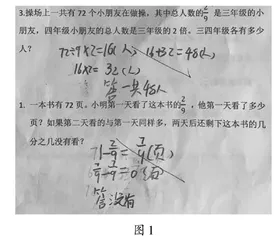 3.操场上一共有 72 个小朋友在做操，其中总人数的2/9 是三年级的小
朋友，四年级小朋友的总人数是三年级的 2 倍，三四年级各有多少
人？
72÷9×2=16(人) 16+32=48(人)
16×2=32(人)
答一共48人
1. 一本书有 72 页，小明第一天看了这本书的2/9，他第一天看了多少
页？如果第二天看的与第一天同样多，两天后还剩下这本书的几
分之几没有看？
答没有
图 1